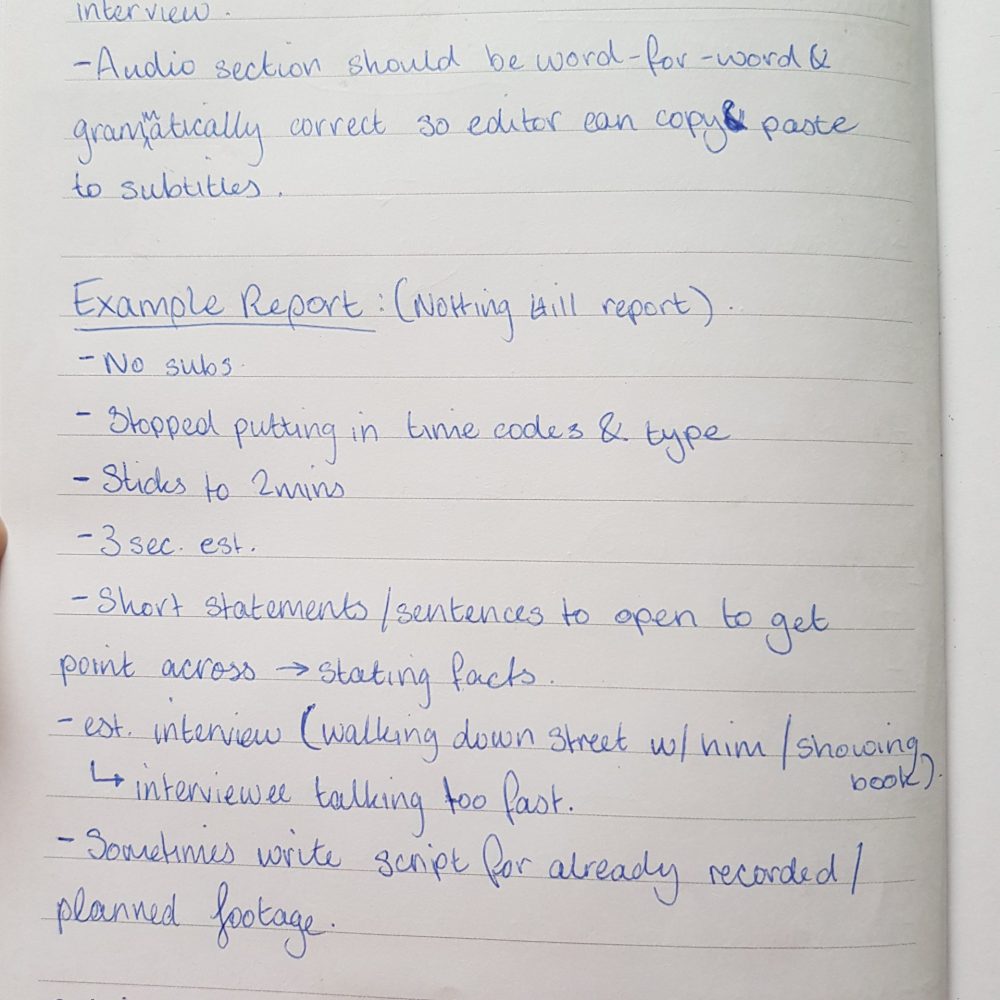 interview.
- Audio section should be word-for-word &
grammatically correct so editor can copy & paste
to subtitles.
Example Report: (Notting Hill report).
- No subs.
- Stopped putting in time codes & type
- Sticks to 2mins
- 3 sec. est.
- Short statements/sentences to open to get
point across → stating facts.
- est. interview (walking down street w/ him/showing
book).
↳ interviewee talking too fast.
- Sometimes write script for already recorded/
planned footage.